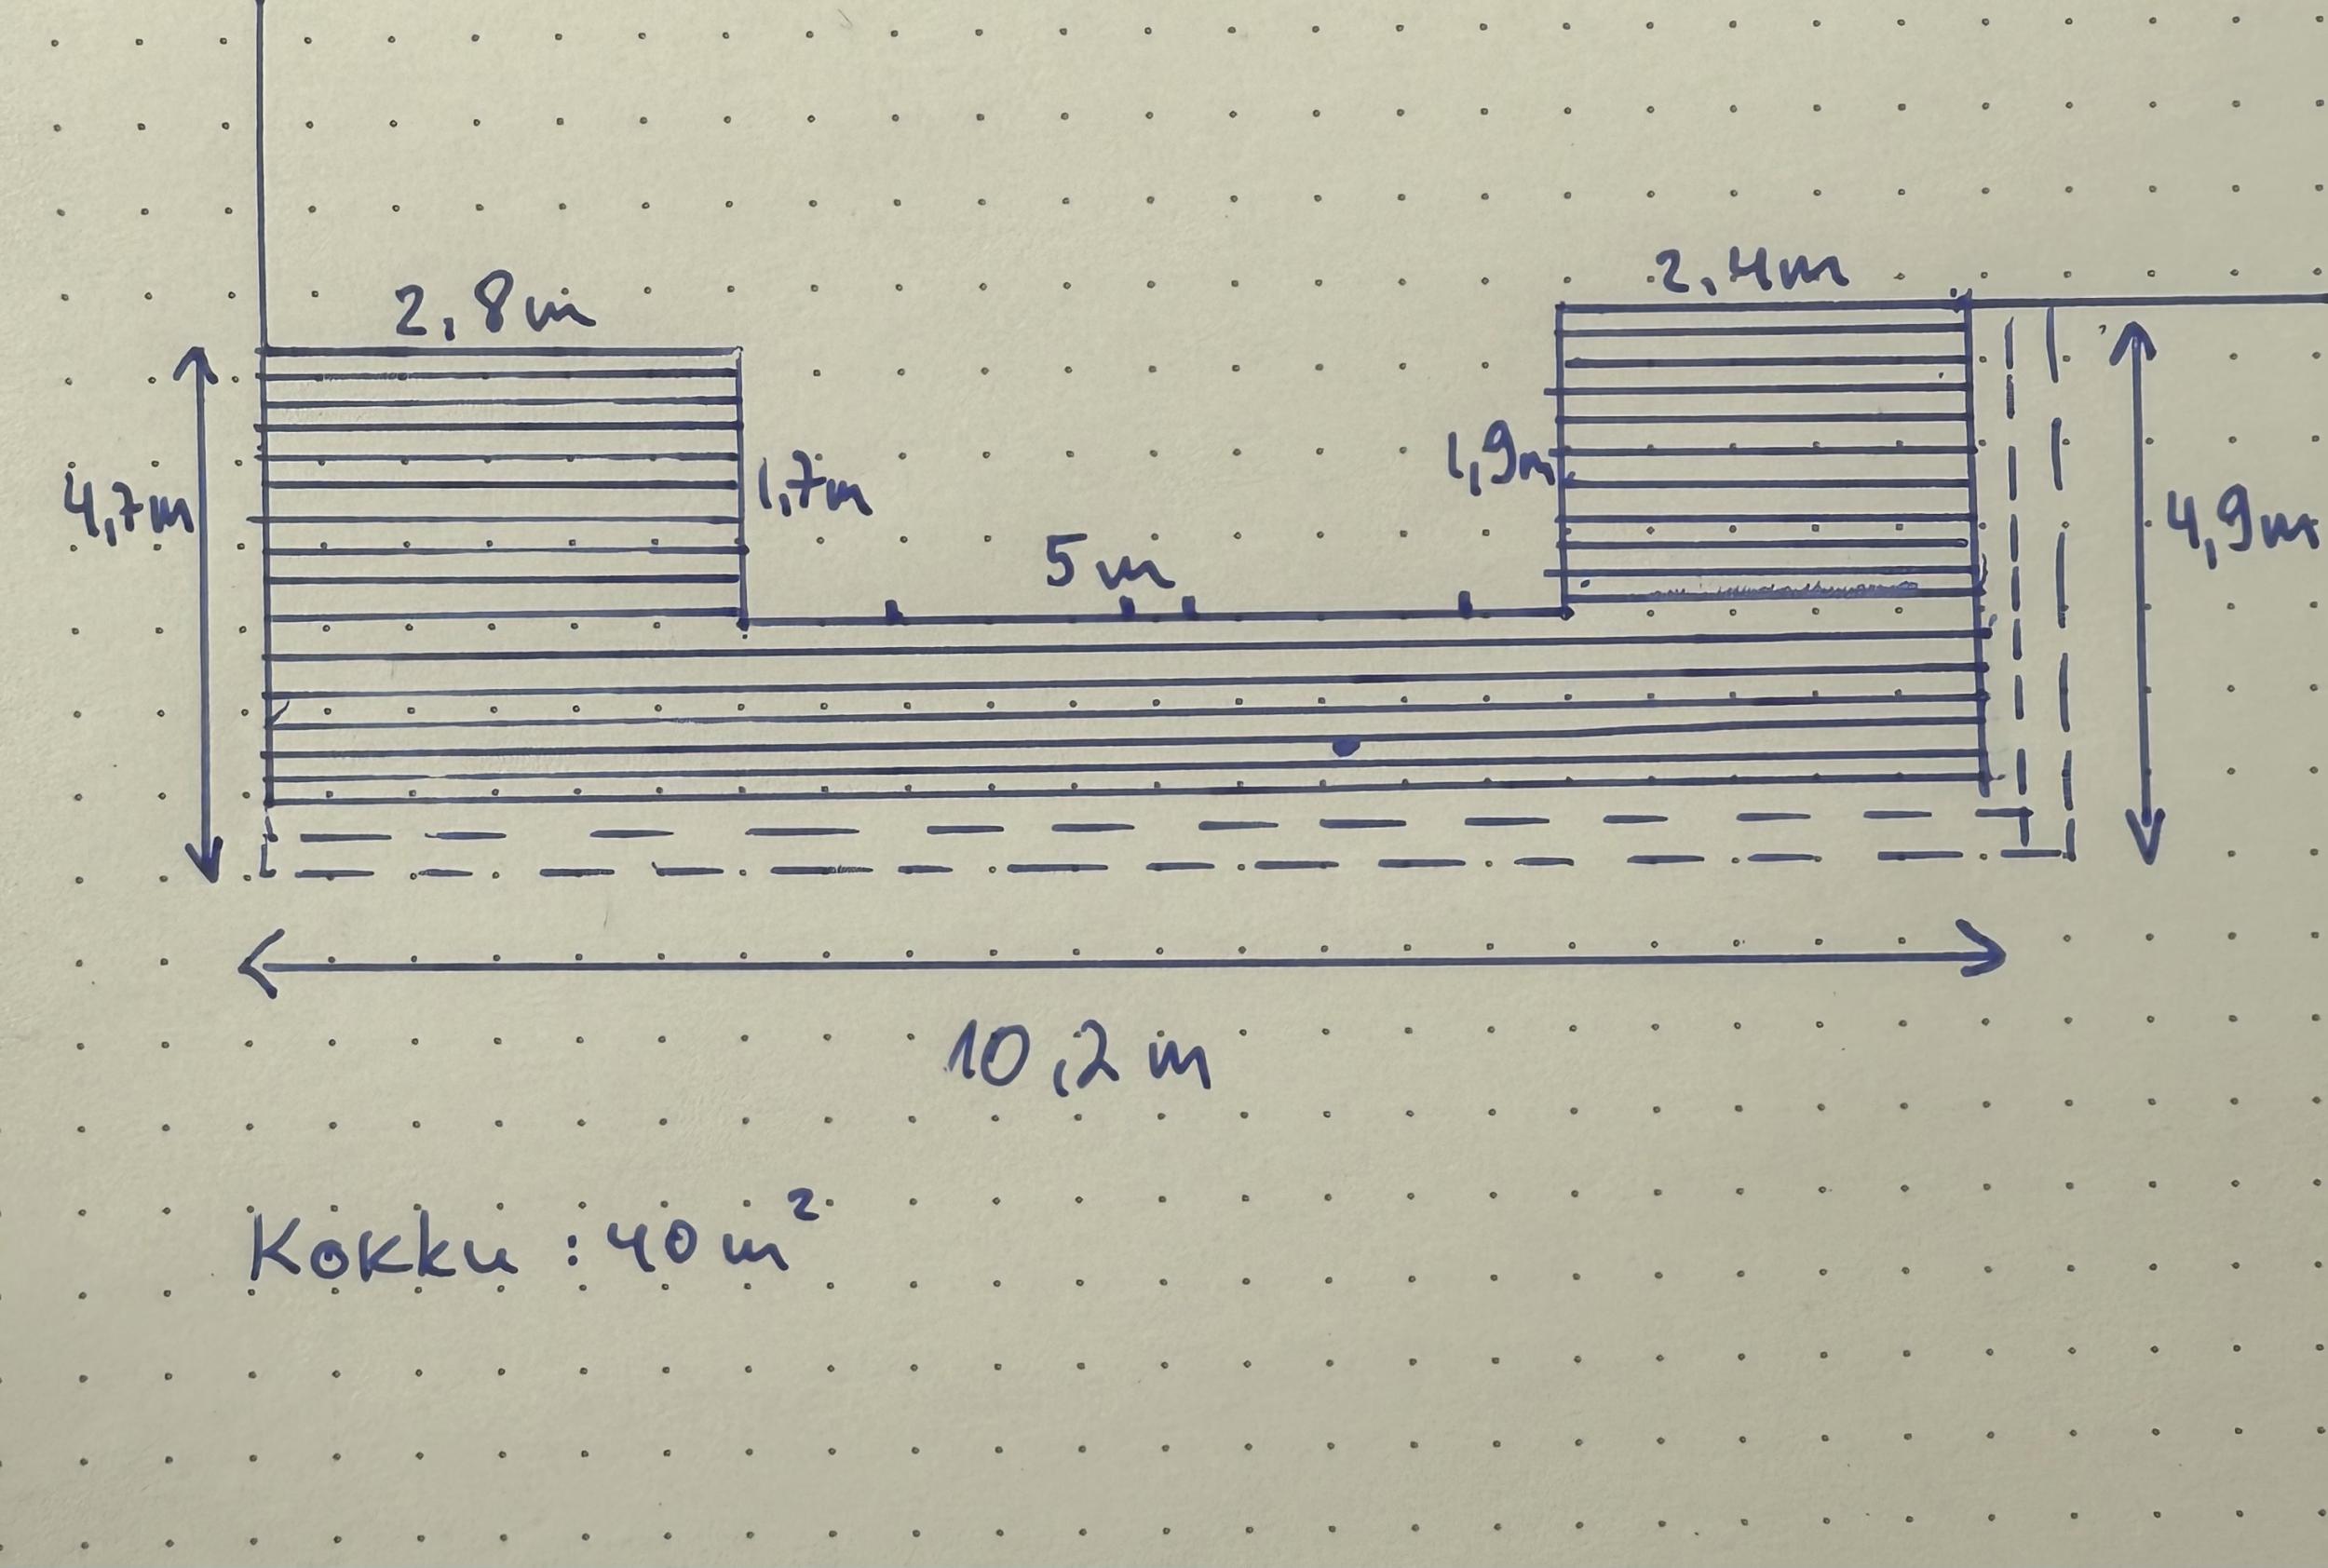 2,8m
2,4m
4,7m
1,7m
1,9m
4,9m
5m
10,2 m
Kokku : 40 m²